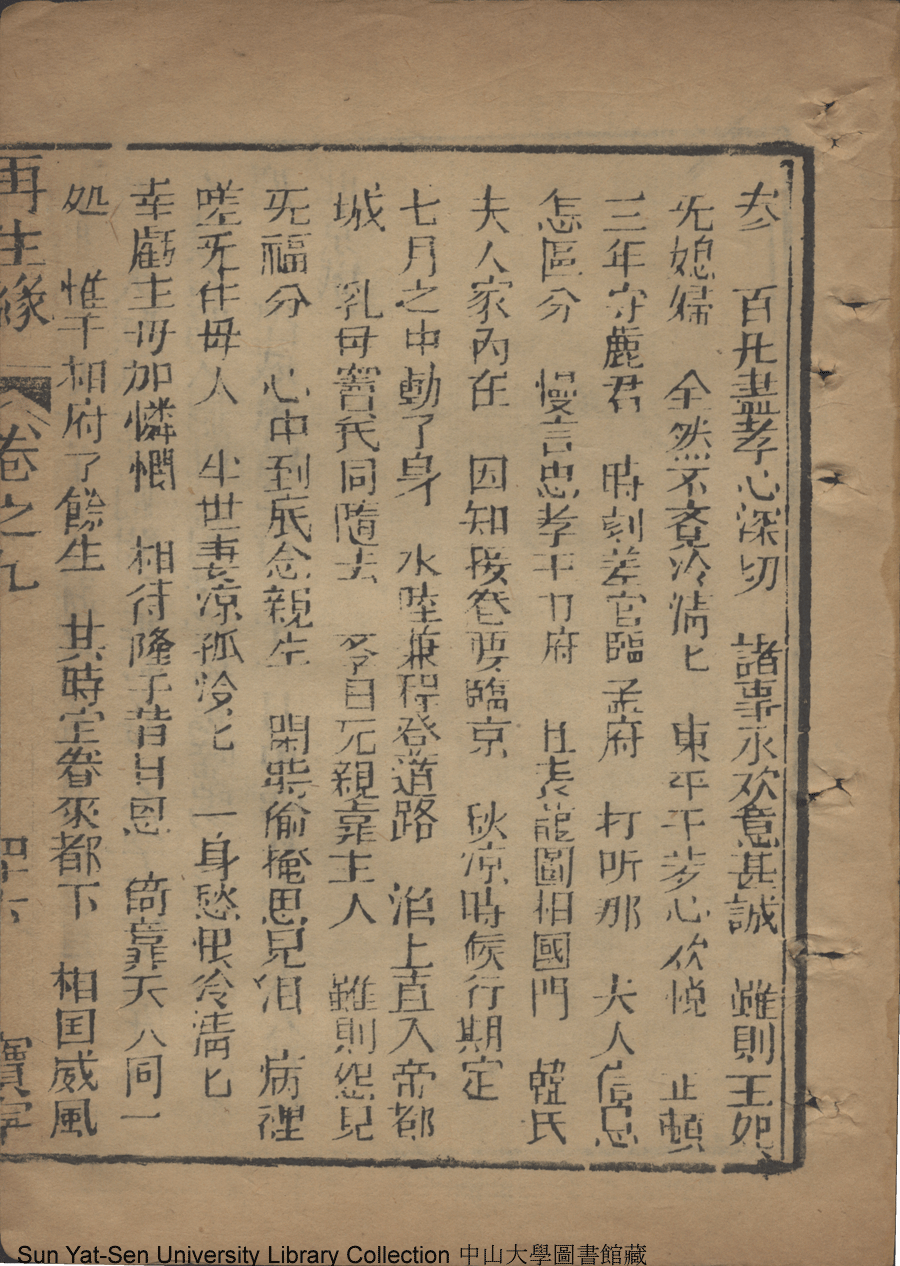 参 百凢盡孝心深切 諸事承欢意甚誠 雖則王妃
旡媳婦 全然不覔冷情匕 東平千歩心欢悦 止頓
三年守鹿君 時刻差官臨孟府 打听那 夫人信息
怎區分 慢言忠孝王府 龍圖相國門 韓氏
夫人家內在 因知接眷要臨京 秋凉時候行期定
七月之中動了身 水陸兼程登道路 滔上直入帝都
城 乳母竇氏同隨去 爷自旡親靠主人 雖則怨兒
旡福分 心中到底念親生 閑時偷掩思兒泪 病裡
嗟旡作母人 半世妻凉孤冷匕 一身愁恨冷清匕
幸虧主母加憐憫 相待隆于昔日恩 倚靠天 八同一
処 惟于相府了餘生 其時宝眷來都下 相国威風
再生緣 卷之九 寶寧
Sun Yat-Sen University Library Collection 中山大學圖書館藏